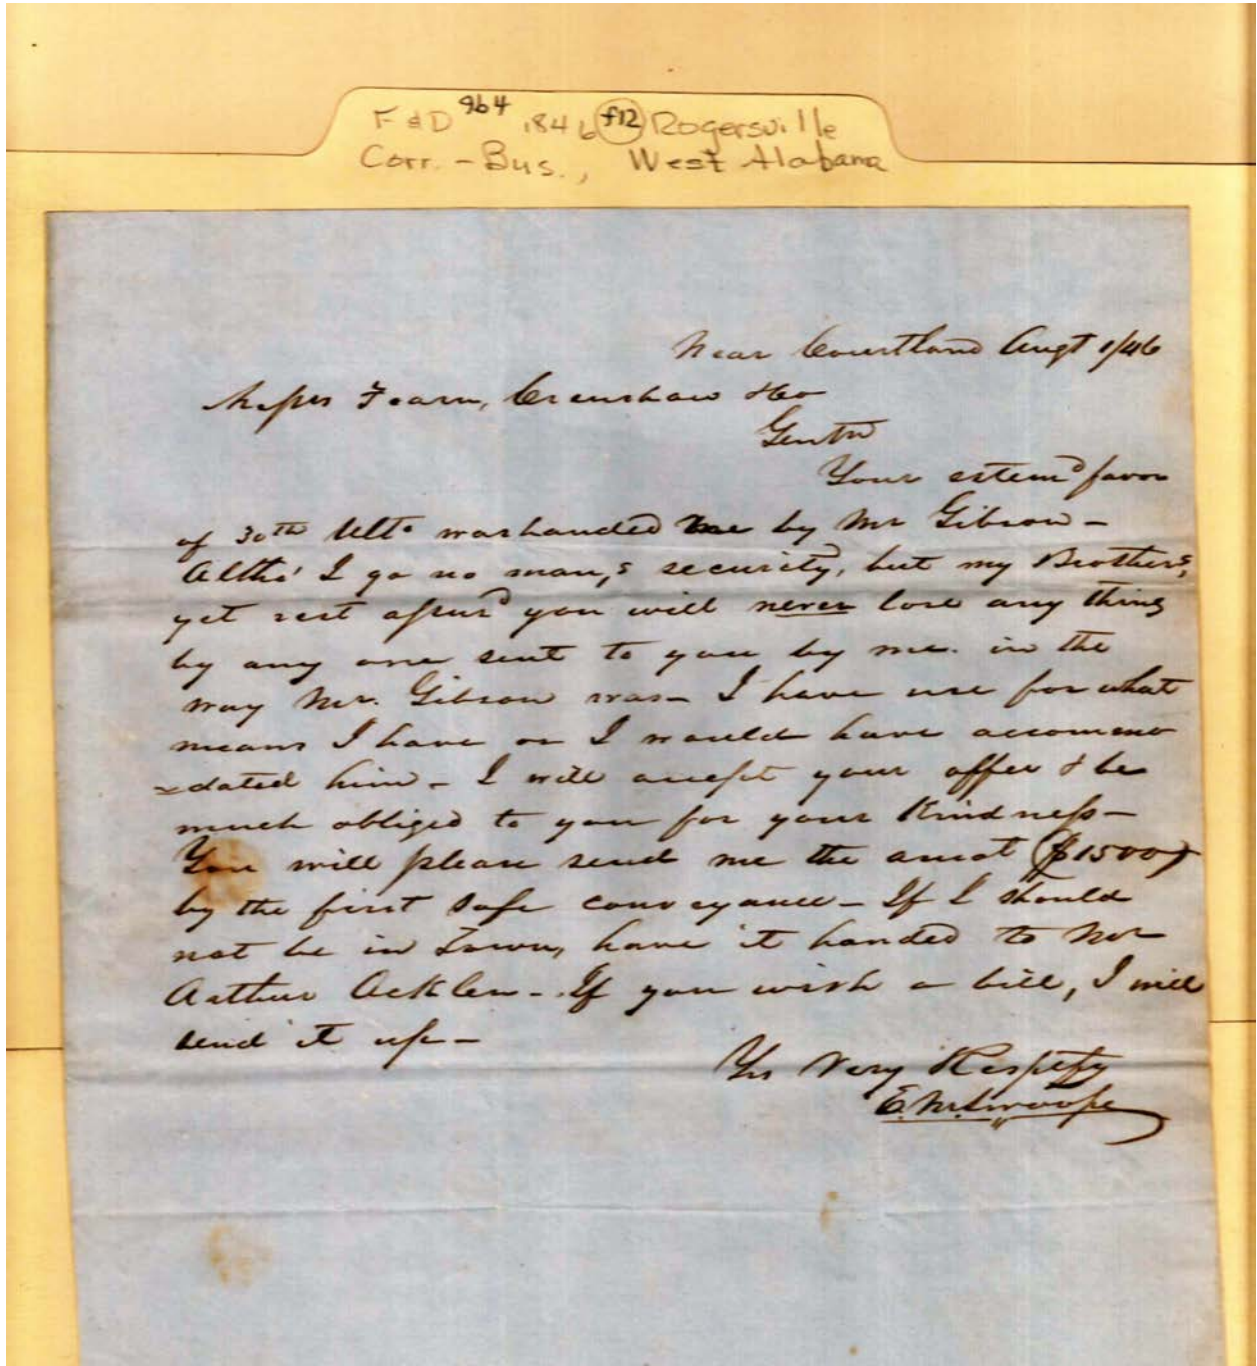 F&D 964 1846 f12 Rogersville
Corr. - Bus., West Alabama
Near Courtland Augt 1/46
Messrs Fearn, Crenshaw & Co
Gentn
Your esteemd favor
of 30th Ulto was handed me by Mr Gibson -
Altho' I go no man,s security, but my Brothers,
yet rest assurd you will never lose any thing
by any one sent to you by me. in the
way Mr. Gibson was - I have use for what
means I have or I would have accommo
=dated him - I will accept your offer & be
much obliged to you for your Kindness -
You will please send me the amot ($1500)
by the first safe conveyance - If I should
not be in Town, have it handed to Mr
Arthur Acklen - If you wish a bill, I will
send it up -
Yrs Very Respcfy
E. M. Swoope